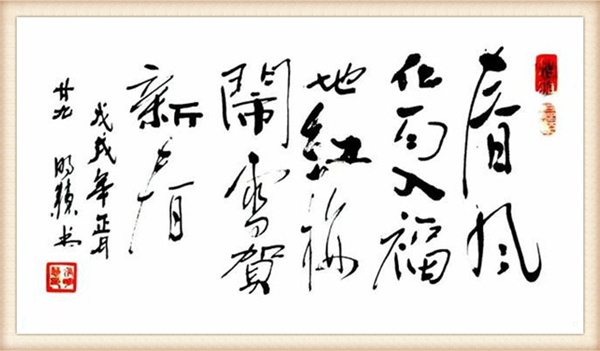 春風
化雨入福
地紅梅
鬧雪賀
新春
戊戌年正月
廿九 明 书